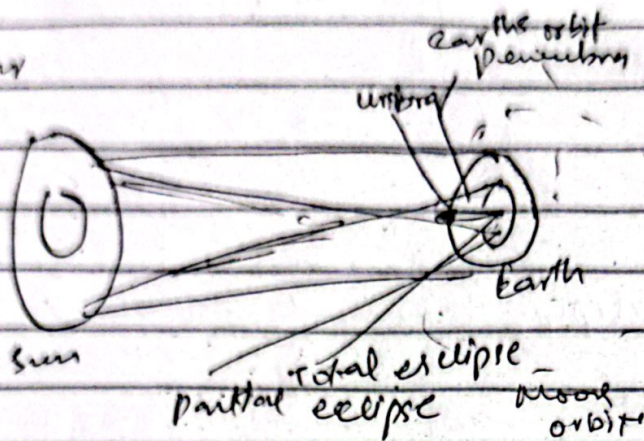 earths orbit
penumbra
umbra
Earth
Sun
Total esclipse
partial eclipse
moon
orbit